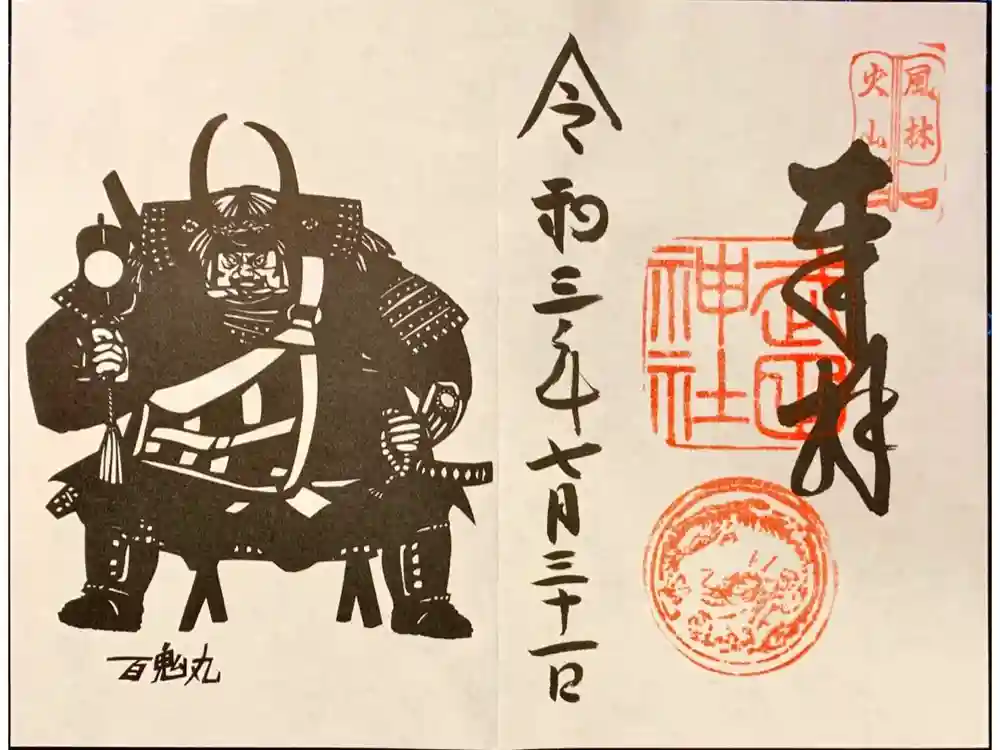 風林
火山
奉拝
武田
神社
令和三年七月三十一日
百鬼丸